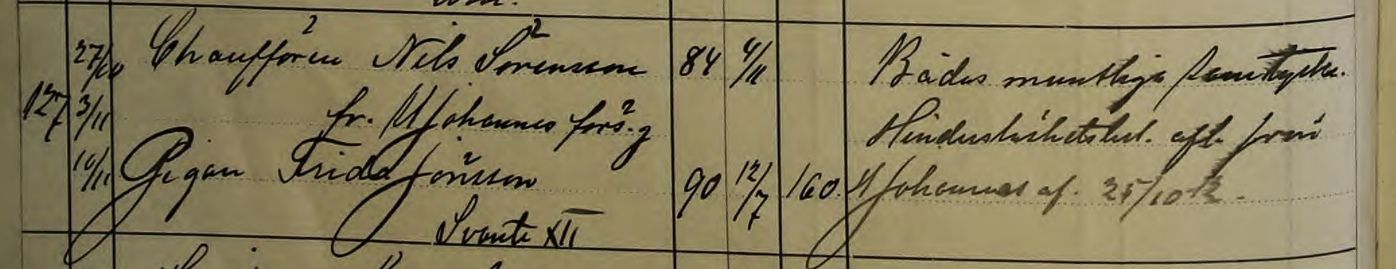 27/10 Chauffören Nils Sörensson 84 4/11 Bådas muntliga samtycke.
127 3/11 fr. M Johannes förs:g Hinderslöshetsbet. afl. från
10/11 Pigan Frida Jönsson 90 12/7 160. M Johannes af. 25/10 12.
Svante XII